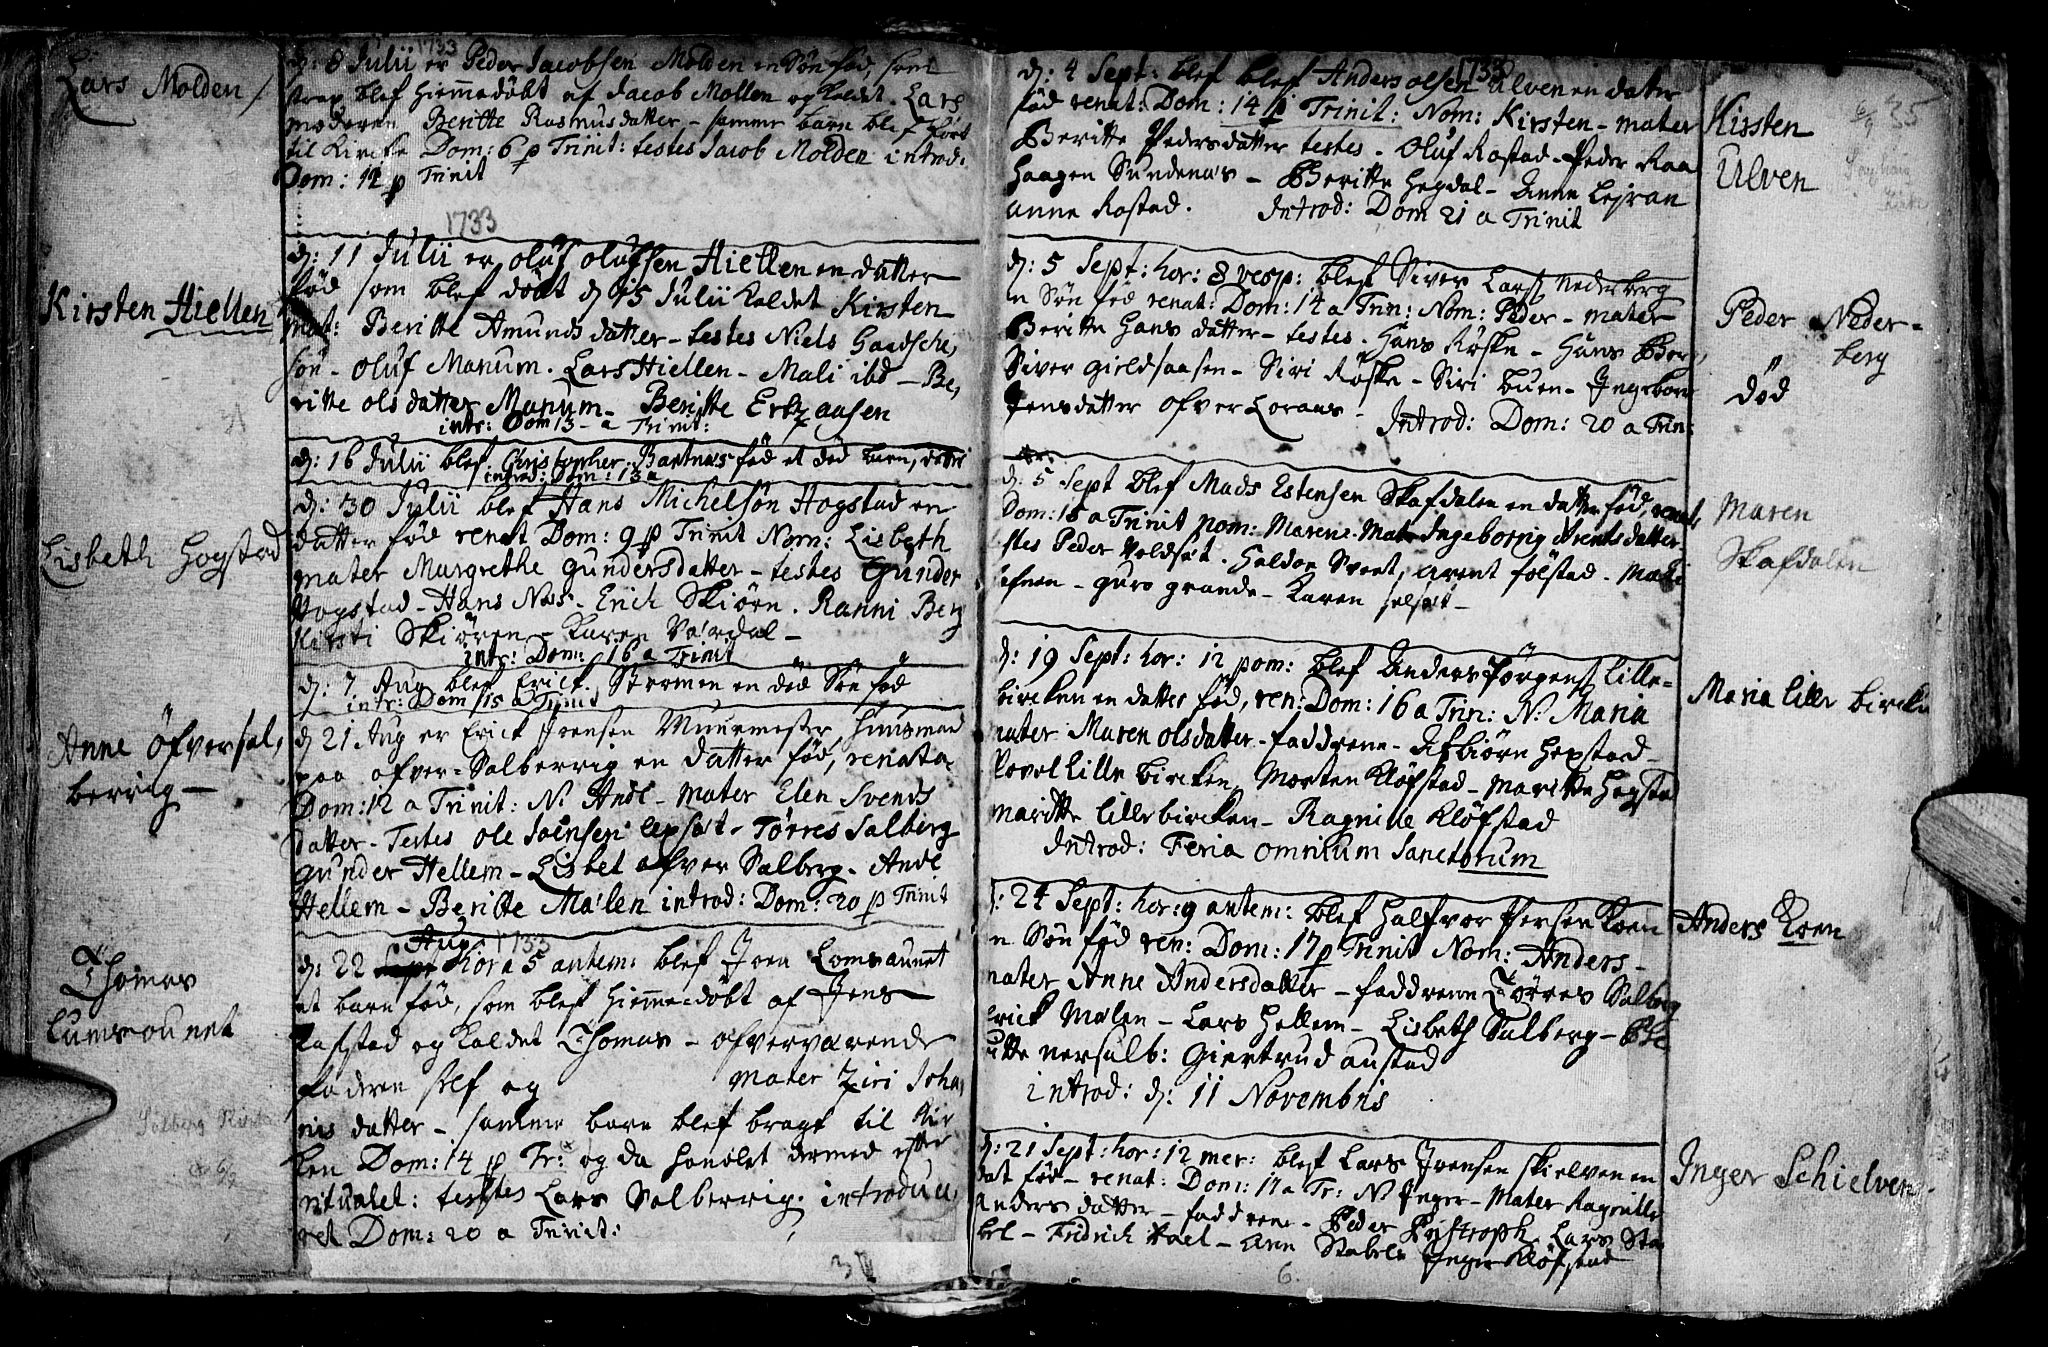 1733
Lars Molden
d: 8 Julii er Peder Jacobsen Molden en Søn fød, som
strax blef hiemmedøbt af Jacob Mollen og kaldet Lars
moderen Beritte Rasmusdatter - samme barn blef ført
til Kircke Dom: 6 p Trinit: testes Jacob Molden introd:
Dom: 12 p Trinit
1733
Kirsten Hiellen
d: 11 Julii er oluf olufsen Hiellen en datter
fød som blef døbt d 15 Julii kaldet Kirsten
mat: Beritte Amunds datter - testes Niels
søn - oluf Manum. Lars Hiellen - Mali ibd - Be,
ritte olsdatter Manum - Beritte
intr: Dom 13 - a Trinit:
d: 16 Julii blef Christopher Bartnes fød et død barn,
introd: Dom: 13 a
Lisbeth Hogstad
d: 30 Julii blef Hans Michelsøn Hogstad en
datter fød renat Dom: 9 p Trinit Nom: Lisbeth
mater Margrethe gundersdatter - testes Gunder
Hogstad - Hans Næss - Erich Skiørn. Ranni Berg
Kirsti Skiøren - Karen Værdal -
intr: Dom: 16 a Trinit
d: 7 Aug blef Erick Stormen en død Søn fød
intr: Dom 15 a Trinit
Anne öfversal,
berrig -
d 21 Aug er Erick Joensen Muurmester, huusmand
paa ofver=Salberrig en datter fød, renata
Dom: 12 a Trinit: N: Andl - mater Elen Svends
datter - Testes ole Joensen - Torres Salberg
gunder Hellem - Lisbet ofver Salberg - Andl
Hellem - Beritte Mælen introd: Dom: 20 p Trinit
Thomas
Lumsounet
Aug 1733
d: 22 Sept hora 5 antem: blef Joen Lomsaunet
et barn fød, som blef hiemmedøbt af Jens
Rafstad og kaldet Thomas - ofverværende
faderen self og mater Ziri Joha,
nis datter - samme barn blef bragt til Kir
ken Dom: 14 p Tr: og da handlet dermed efter
ritualet: testes Lars Salberrig. introduce,
ret Dom: 20 a Trinit:
1733
35
d: 4 Sept: blef blef Anders olsen Ulven en datter
fød renat: Dom: 14 p Trinit: Nom: Kirsten - mater
Beritte Pedersdatter testes - Oluf Rostad - Peder Raa
Haagen Sundenæs - Beritte Hegdal - Anne Lejran
anne Rostad. Introd: Dom 21 a Trinit
Kirsten
Ulven
d: 5 Sept: hor: 8 vesp: blef Siver Lars Nederberg
en Søn fød renat: Dom: 14 a Trin: Nom: Peder - mater
Beritte Hans datter - testes. Hans Røske - Hans Berg,
Siver gieldsaasen - Siri Røske - Siri buen - Ingeborg
Jensdatter ofver Loraas - Introd: Dom: 20 a Trin:
Peder Neder-
berg
Död
d: 5 Sept blef Mads Estensen Skafdalen en datter fød, renat,
Dom: 15 a Trinit nom: Maren - Mater Ingeborrig Arentsdatter
stes Peder Voldset. Haldor Sveet, arent folstad. Mali
- guro grande - Karen selset -
Maren
Skafdalen
d: 19 Sept: hor: 12 pom: blef Anders Jörgens lille-
bircken en datter fød, ren: Dom: 16 a Trin: N: Maria
mater Maren olsdatter - faddrene - Asbiørn Hegstad -
Povel Lille bircken, Morten Kløfstad - Maritte Hegstad
maritte lillebircken - Ragnille Kløfstad
Introd: Feria omnium Sanctorum
Maria lille bircken
d: 24 Sept: hor: 9 antem: blef Halfvor Persen Koen
en Søn fød ren: Dom: 17 p Trinit Nom: Anders -
mater Anne Andersdatter - faddrene Törres Salberg
Erick Mælen - Lars Hellem - Lisbeth Salberg - Be
ritte nersalb: Giertrud austad
introd: d: 11 Novembris
Anders Koen
d: 21 Sept: hor: 12 mer: blef Lars Joensen skielven en
dat fød - renat: Dom: 17 a Tr: N Inger - Mater Ragnille
anders datter - faddrene - Peder Bystroph, Lars Sta
bel - Fridrich - Ann Stabel Inger Kløfstad
Inger Schielven
6.